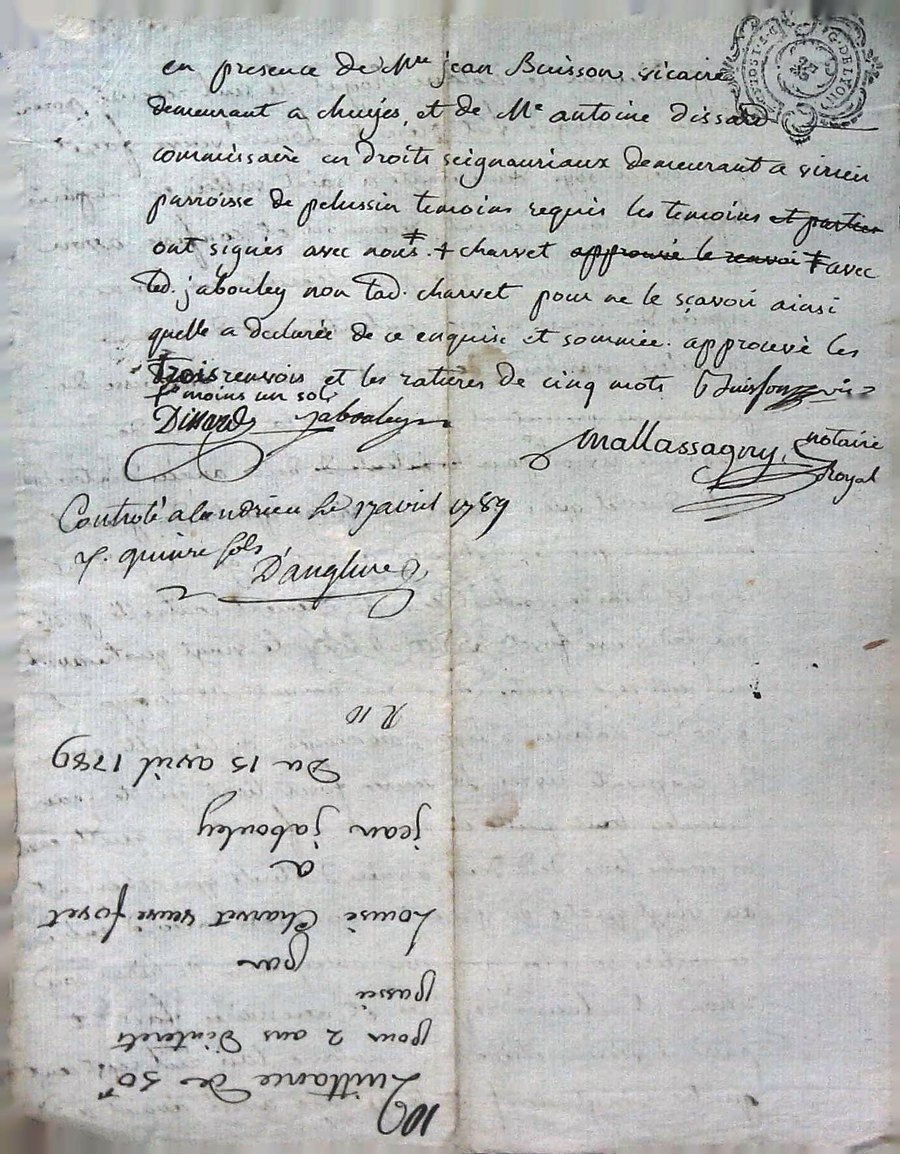 en presence de Mre jean Buisson vicaire
demeurant a chuyes, et de Me antoine dissard
commissaire en droits seigneuriaux demeurant a virieu
parroisse de pelussin temoins requis les temoins et parties
ont signés avec nous ‡ . + charvet approuvé le renvoi ‡ avec
led. jabouley non lad. charvet pour ne le sçavoir ainsi
quelle a declarée de ce enquise et sommée. approuvé les
trois renvois et les ratures de cinq mots Buisson vic
moins un sol
Dissard jabouley
mallassagny, notaire
Royal
Controlé a Condrieu le 17 avril 1789
R. quinze sols
D'anglure
G. DE LYON
R 10
Du 15 avril 1789
jean jabouley
a
Louise Charvet veuve foret
par
passée
pour 2 ans d'interets
Quittance de 30#
109